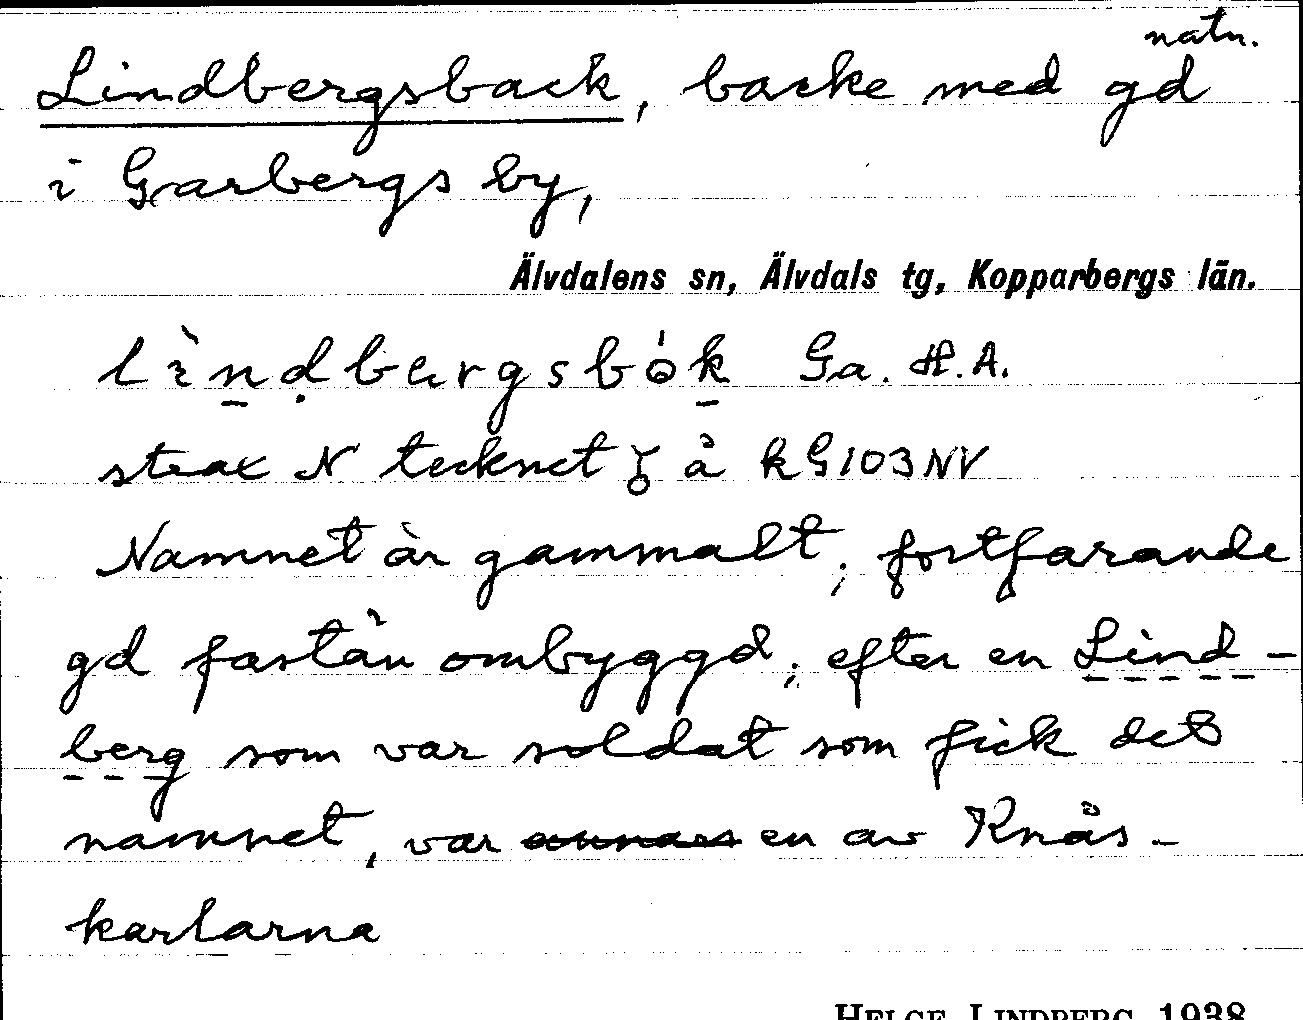 natn.
Lindbergsback, backe med gd
i Garbergs by,
Älvdalens sn, Älvdals tg, Kopparbergs län.
Ga. H.A.
strax N tecknet å kG103NV
Namnet är gammalt; fortfarande
gd fastän ombyggd; efter en Lind-
berg som var soldat som fick det
namnet, var annars en av Knås-
karlarna
HELGE LINDBERG 1938